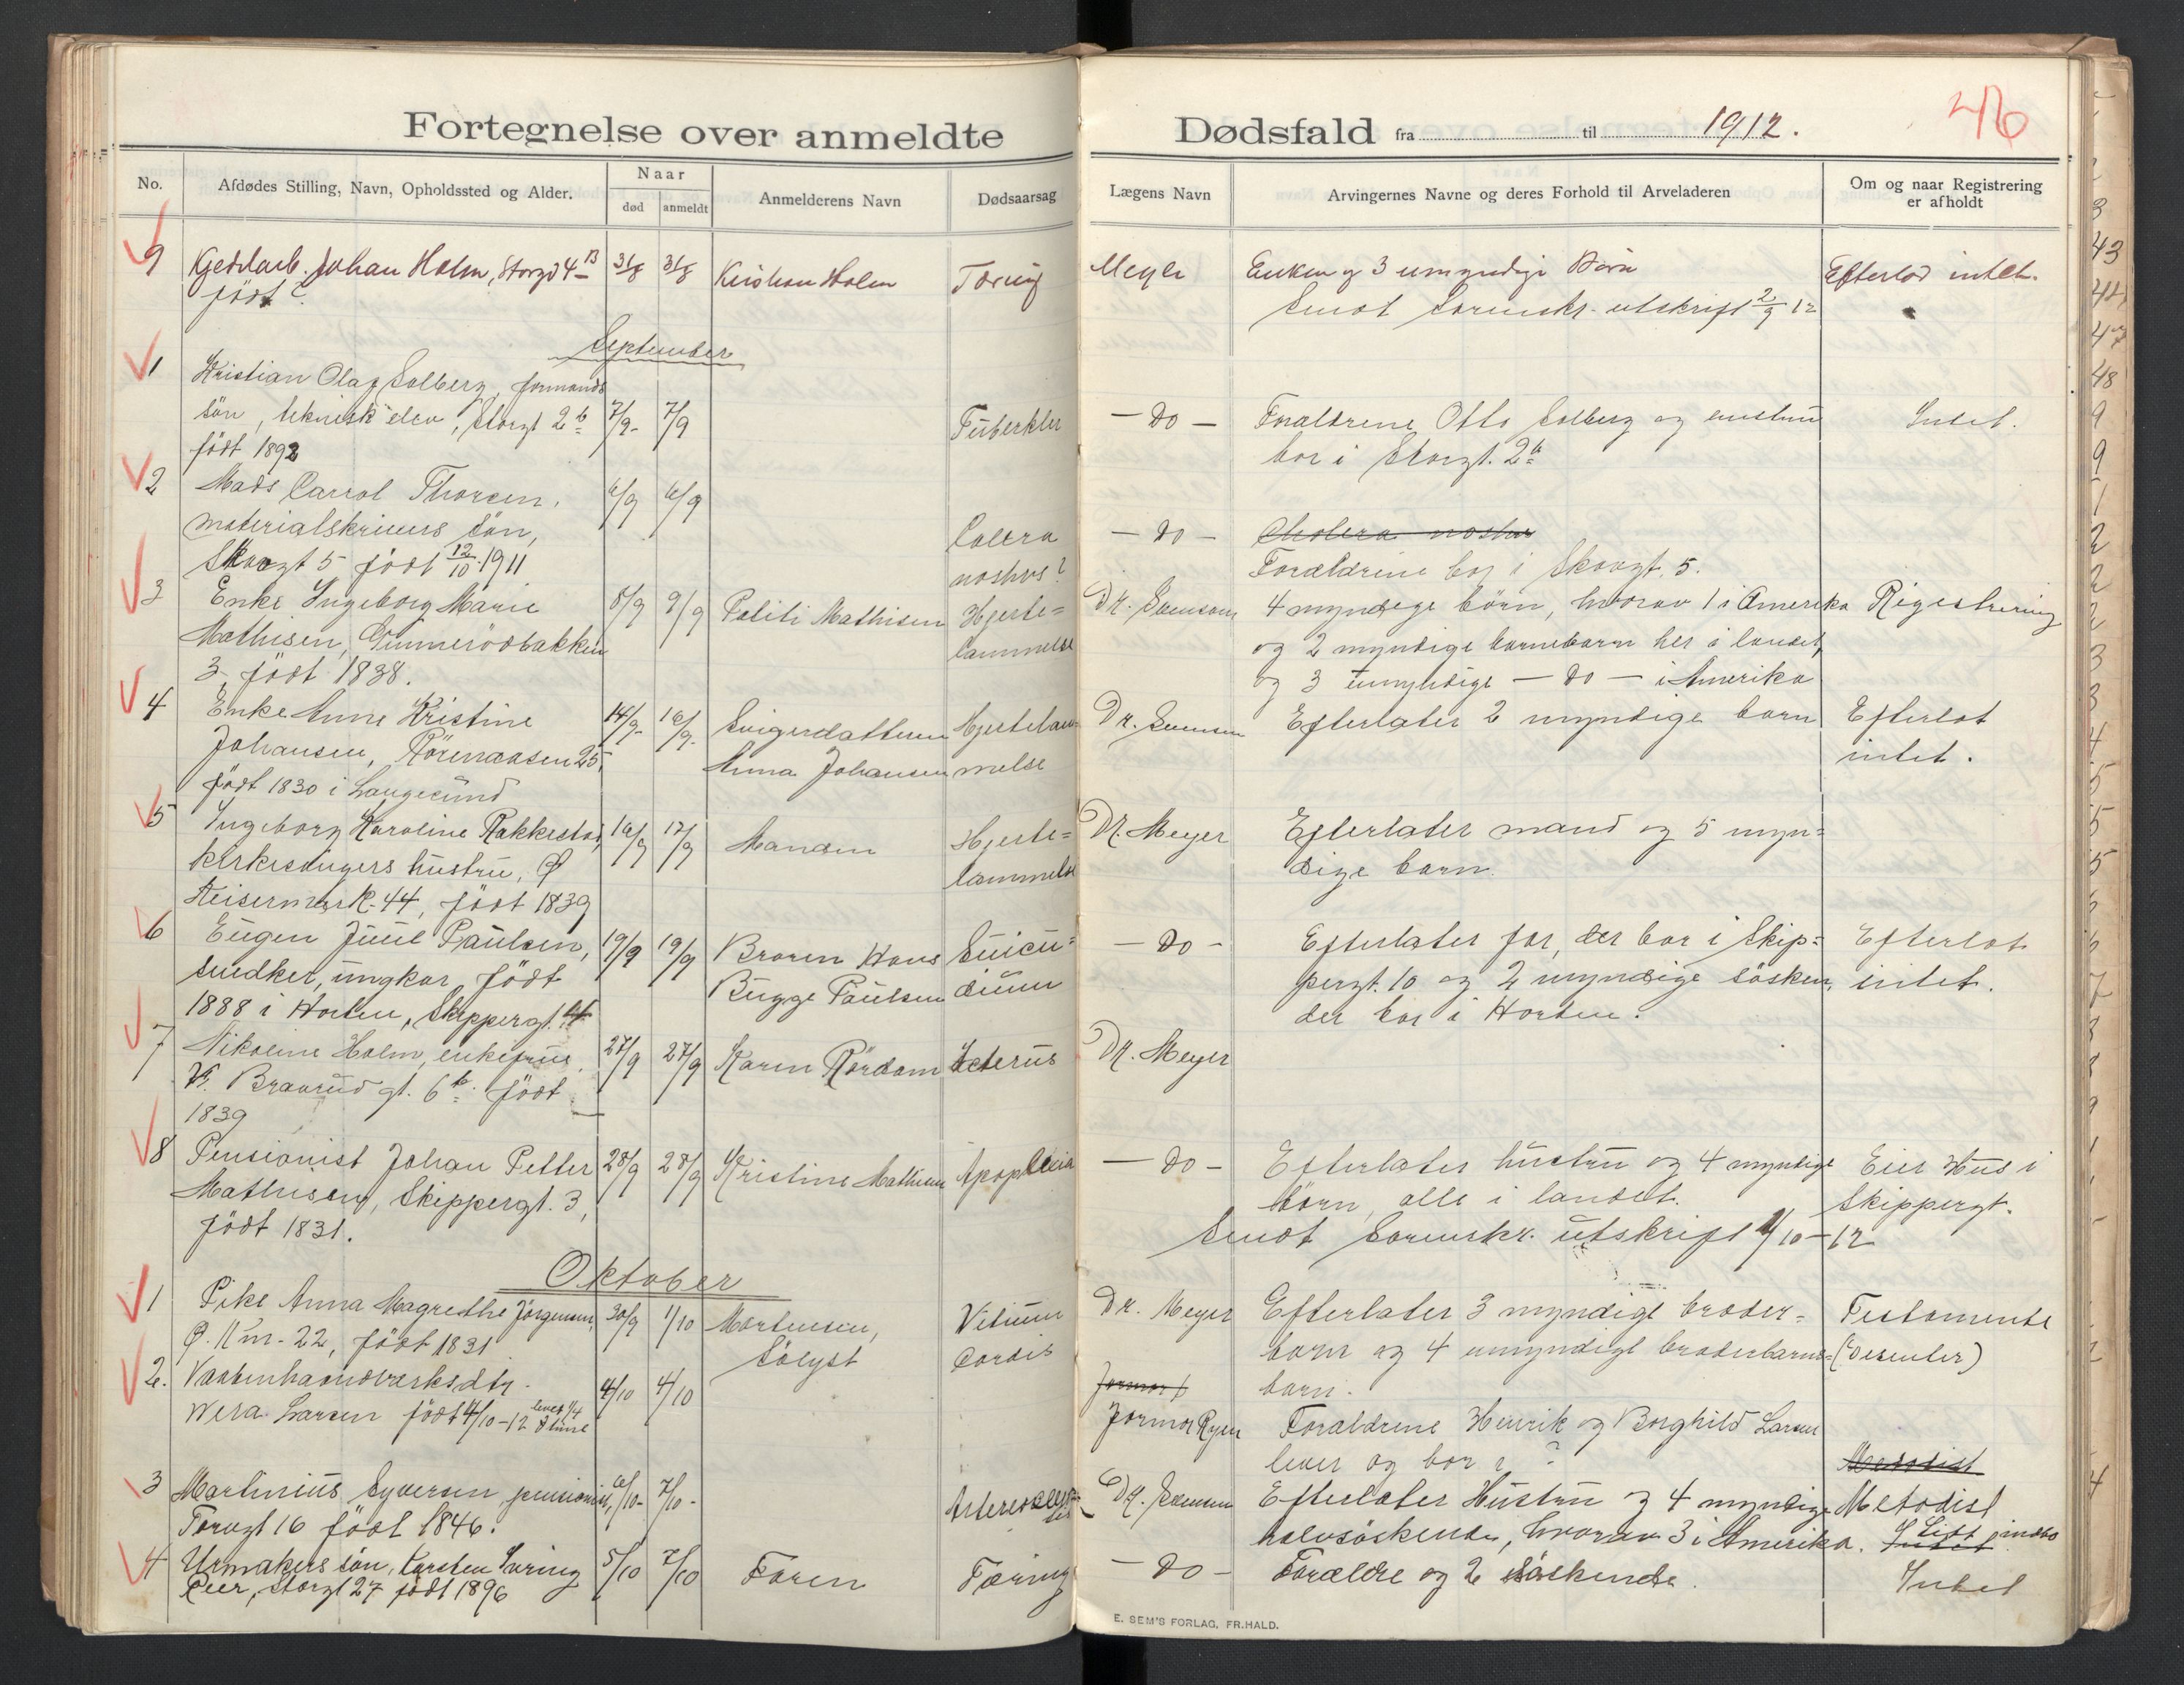 Fortegnelse over anmeldte Dødsfald fra til 1912.
46
No.
Afdødes Stilling, Navn, Opholdssted og Alder.
Naar
død
anmeldt
Anmelderens Navn
Dødsaarsag
Lægens Navn
Arvingernes Navne og deres Forhold til Arveladeren
Om og naar Registrering
er afholdt
9 Kjedelarb. Johan Holm, Storgd 4 B 31/8 31/8 Kristian Holm Tæring Meyer Enken og 3 umyndige Børn Efterlod intet.
født ?
Sendt Sorenskr. utskrift 2/9 12
September
1 Kristian Olaf Solberg, formands
søn, teknisk elev, Storgt 2 b 7/9- 7/9 Tuberkler - Do - Forældrene Otto Solberg og hustru Intet.
født 1892
bor i Storgt. 2 b
2 Mads Carrol Thoresen, 6/9 6/9
materialskrivers søn, Colera - Do - Cholera nostras
Skovgt 5 født 12/10 1911 nostras? Forældrene bor i Skovgt. 5.
3 Enke Ingeborg Marie 8/9 9/9 Politi Mathisen Hjerte= Dr. Svensen 4 myndige børn, hvorav 1 i Amerika Registrering
Mathisen, Gunnerødbakken lammelse og 2 myndige barnebarn her i landet,
3, født 1838.
og 3 umyndige - Do - i Amerika
4 Enke Anne Kristine 14/9- 16/9- Svigerdatteren Hjertelam= Dr. Svensen Efterlater 2 myndige barn Efterlot
Johansen, Rørenaasen 25, Anna Johansen melse intet.
født 1830 i Langesund
5 Ingeborg Karoline Rakkestad, 16/9 17/9 Manden Hjerte= Dr. Meyer Efterlater mand og 5 myn=
kirkesangers hustru, Ø lammelse dige barn.
Keisermark. 44, født 1839
6 Eugen Juul Paulsen, 19/9 19/9 Broren Hans Suicu= - Do - Efterlater far, der bor i Skip= Efterlot
snedker, ungkar, født Bugge Paulsen dium pergt. 10 og 2 myndige søsken, intet.
1888 i Horten, Skippergt.
der bor i Horten.
7 Nikoline Holm, enkefrue 27/9 27/9 Karen Rørdam Icterus Dr. Meyer
V. Braarud gt. 6 b født
1839
8 Pensionist Johan Petter 28/9 28/9 Kristine Mathisen Apoplexia - Do - Efterlater hustru og 4 myndige Eier Hus i
Mathisen, Skippergt. 3, børn, alle i landet. Skippergt.
født 1831.
Sendt Sorenskr. utskrift 1/10-12
Oktober
1 Pike Anna Magrethe Jørgensen, 30/9 1/10 Mortensen, Vitium Dr. Meyer Efterlater 3 myndige broder= Testamente
Ø. Km. 22, født 1831 Sølyst Cordis barn og 4 umyndige broderbarns= (Desember)
barn.
2. Vaabenhaandverksdtr. 4/10 4/10 Jormor
Wera Larsen født 4/10-12 levet 1/4 time Jormor Ryen Forældrene Henrik og Borghild Larsen
lever og bor ?
Metodist
3 Martinius Syversen, pensionist, 6/10- 7/10- Dr. Svensen Efterlater Hustru og 4 myndige Metodist
Torvgt 16 født 1846. halvsøskende, hvorav 3 i Amerika. Intet Lidt indbo
4 Urmakers søn, Karsten Thoring 5/10 7/10 Faren Tæring - Do - Forældre og 2 søskende. Intet
Peer, Storgt 27 født 1896
E. SEM'S FORLAG, FR.HALD.